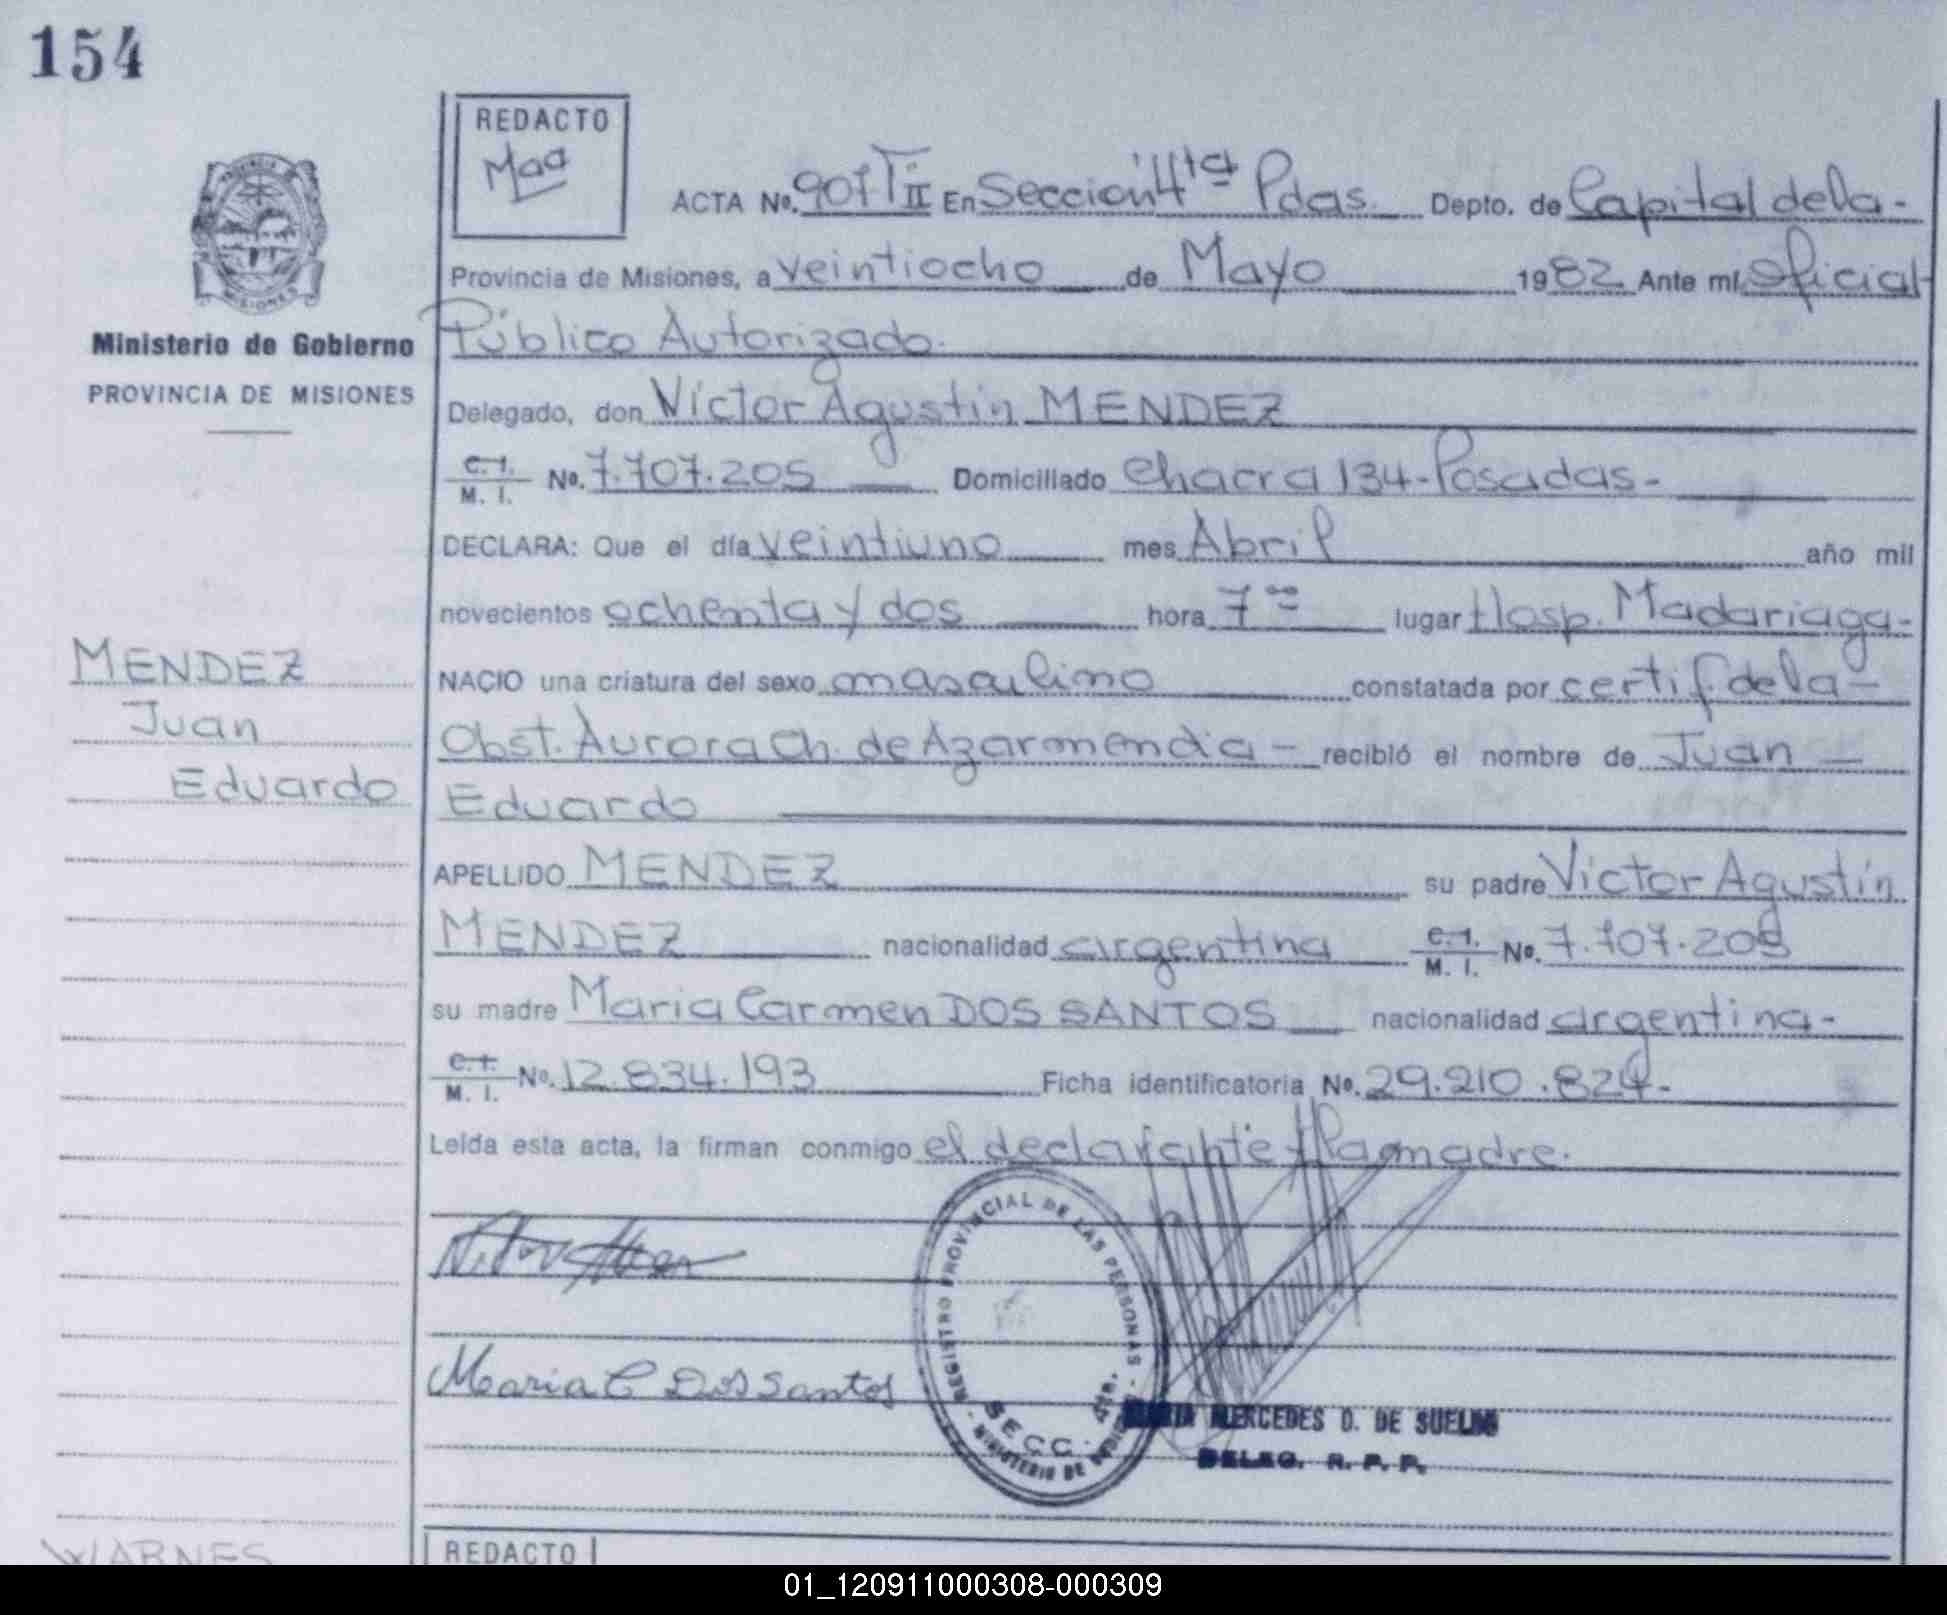 154
REDACTO
Maa
ACTA No. 907 T II En Sección 4ta Pdas. Depto. de Capital de la-
Provincia de Misiones, a veintiocho de Mayo 1982 Ante mí, Oficial
Público Autorizado.
Delegado, don Víctor Agustín MENDEZ
C. I.
M. I. No. 7.707.205 Domiciliado Chacra 134-Posadas-
DECLARA: Que el día veintiuno mes Abril año mil
novecientos ochenta y dos hora 7 lugar Hosp. Madariaga-
NACIO una criatura del sexo masculino constatada por certif. de la-
Obst. Aurora Ch. de Azarmendia- recibió el nombre de Juan
Eduardo
APELLIDO MENDEZ su padre Víctor Agustín
MENDEZ nacionalidad argentina C. I.
M. I. No. 7.707.205
su madre Maria Carmen DOS SANTOS nacionalidad argentina-
C. I.
M. I. No. 12.834.193 Ficha identificatoria No. 29.210.824-
Leída esta acta, la firman conmigo el declarante y la madre.
Maria C Dos Santos
REGISTRO PROVINCIAL DE LAS PERSONAS
SECC. 4ta.
MINISTERIO DE
MERCEDES D. DE
DELEG. R. P. P.
PROVINCIA
MISIONES
Ministerio de Gobierno
PROVINCIA DE MISIONES
MENDEZ
Juan
Eduardo
WARNES
REDACTO
01_120911000308-000309